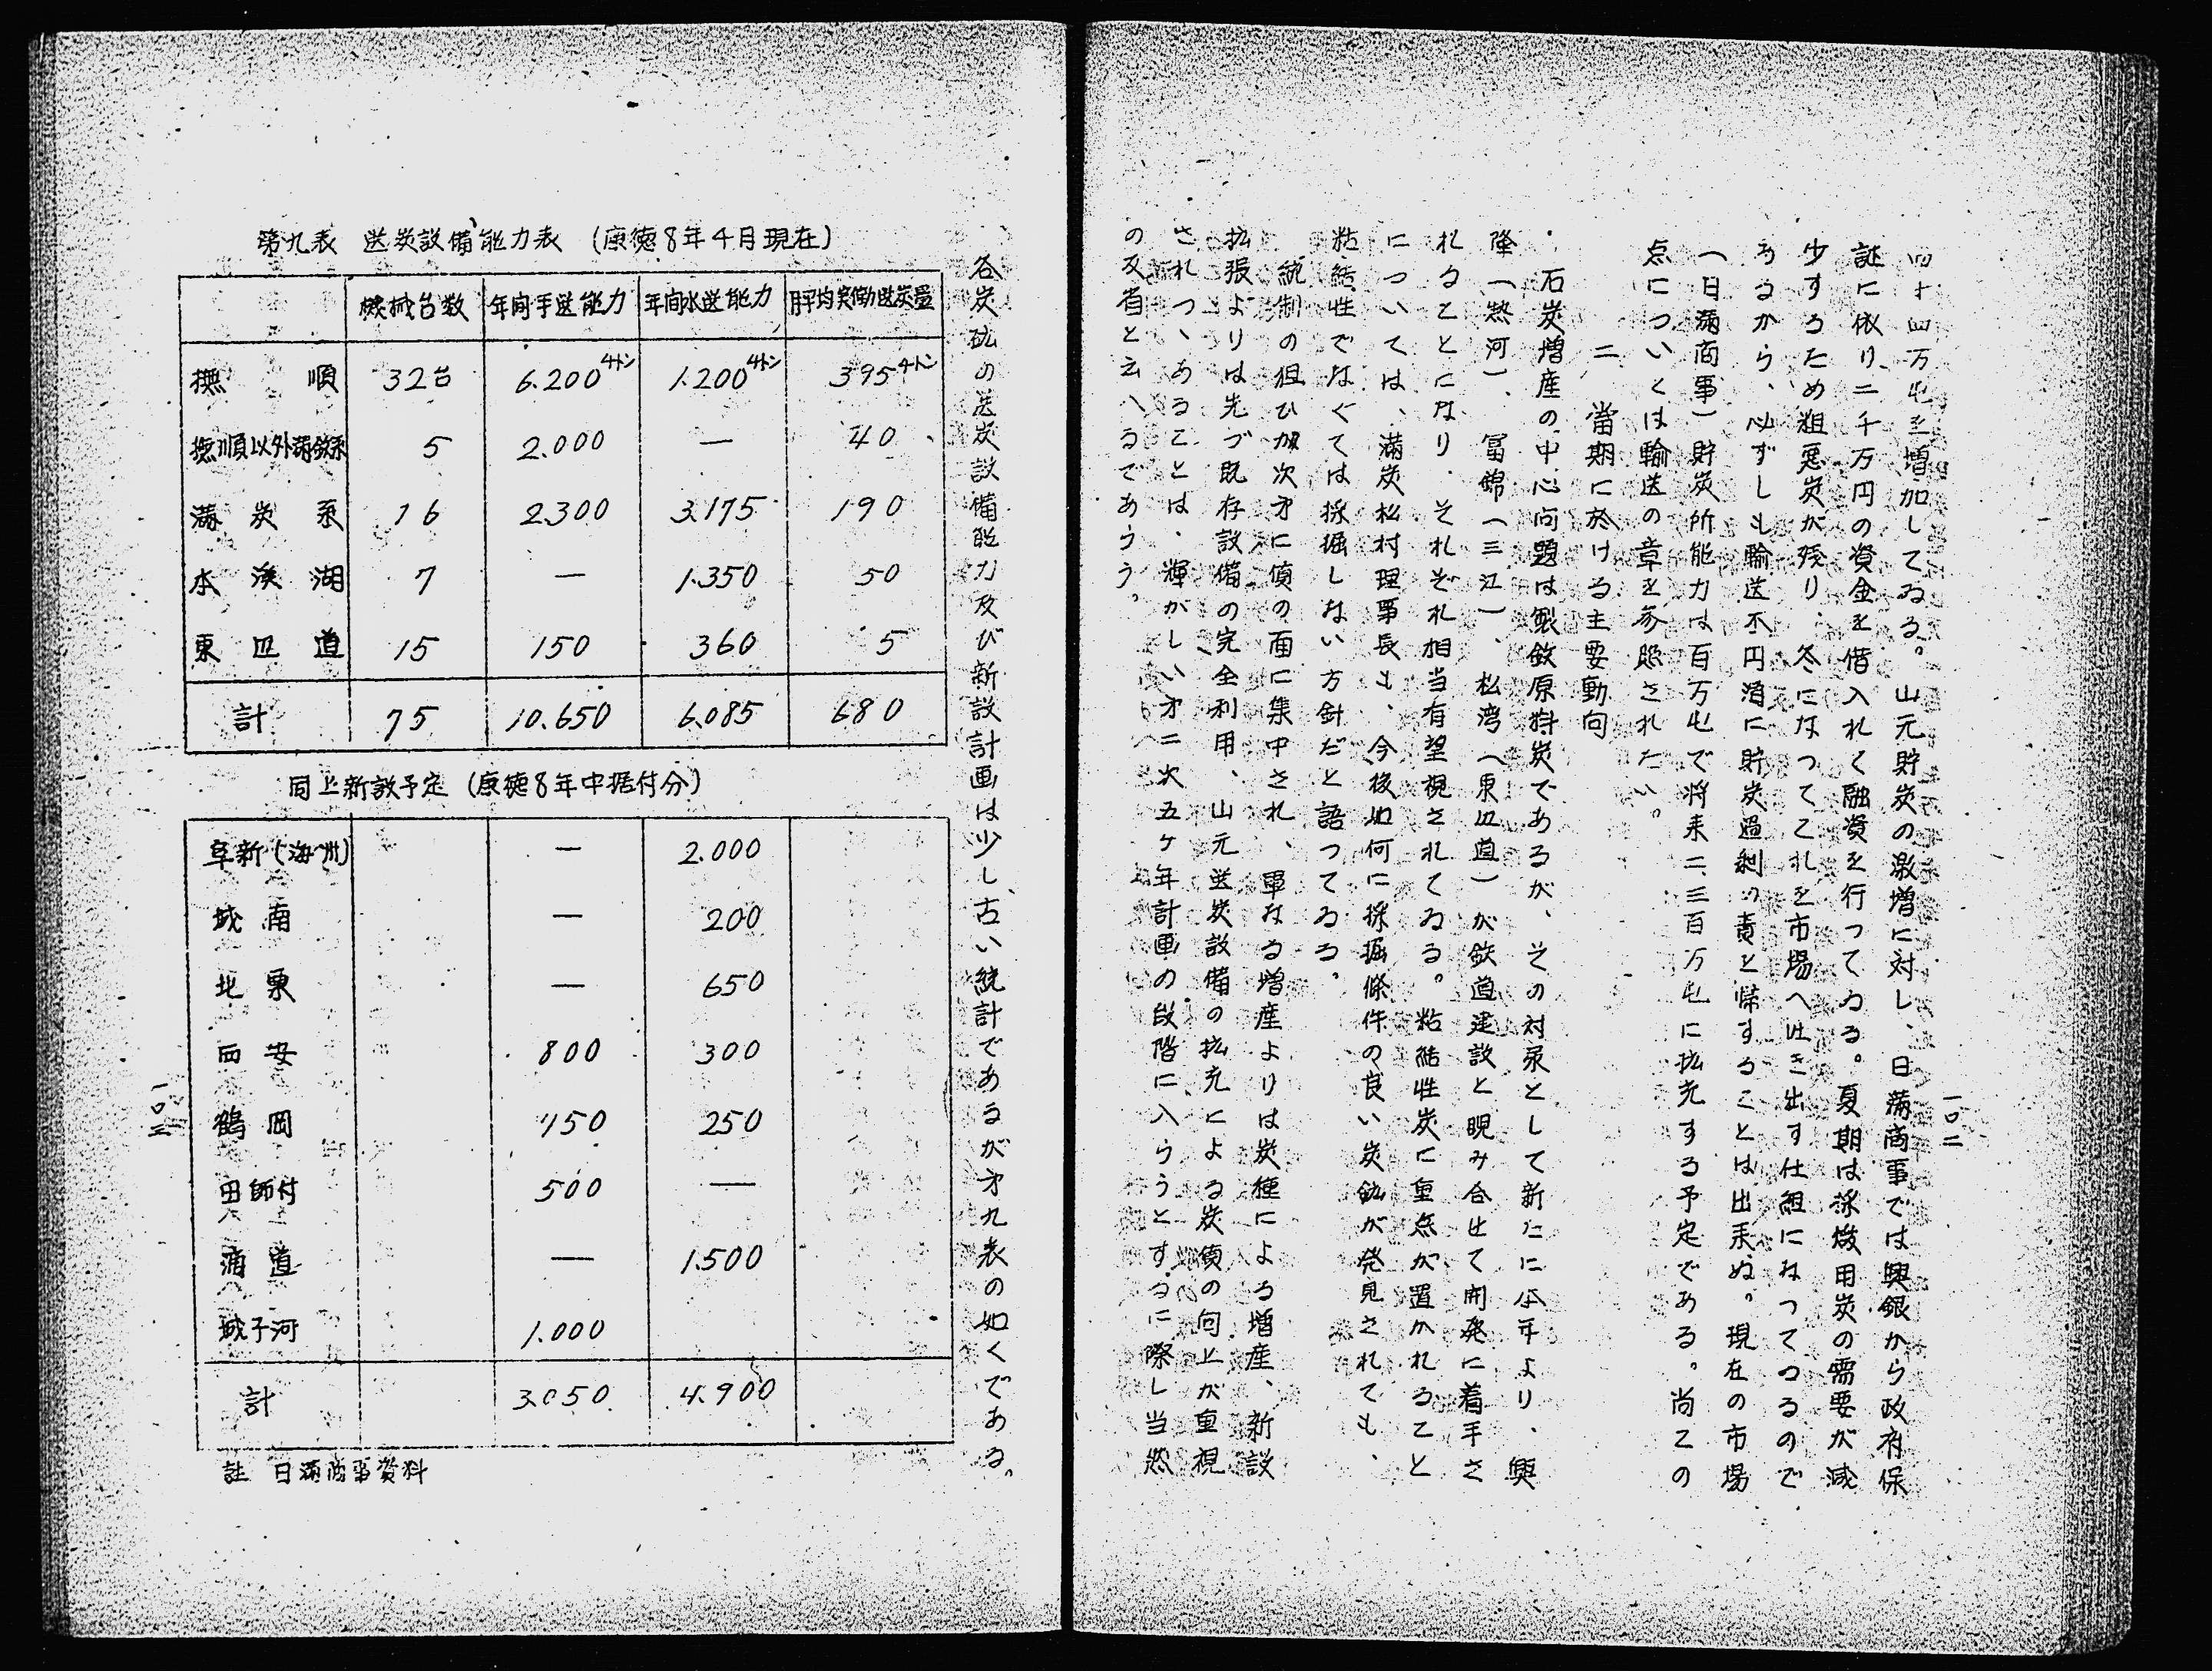 一〇二
四十四万屯を増加してゐる。山元貯炭の激増に対し、日満商事では興銀から政府保
証に依り二千万円の資金を借入れて融資を行つてゐる。夏期は採煖用炭の需要が減
少するため粗悪炭が残り、冬になつてこれを市場へ吐き出す仕組になつてゐるので
あるから、必ずしも輸送不円滑に貯炭過剰の責を帰することは出来ぬ。現在の市場
(日満商事)貯炭所能力は百万屯で将来二、三百万屯に拡充する予定である。尚この
点についくは輸送の章を参照されたい。
二 當期に於ける主要動向
石炭増産の中心问題は製鉄原料炭であるが、その対策として新たに本年より、興
隆(熱河)、冨錦(三江)、松湾(東辺道)が鉄道建設と睨み合せて開発に着手さ
れることになり、それぞれ相当有望視されてゐる。粘結性炭に重点が置かれること
については、満炭松村理事長も、今後如何に採掘條件の良い炭鉱が発見されても、
粘結性でなくては採掘しない方針だと語つてゐる。
統制の狙ひが次才に質の面に集中され、単なる増産よりは炭種による増産、新設
拡張よりは先づ既存設備の完全利用、山元送炭設備の拡充による炭質の向上が重視
されつゝあることは、輝かしい才二次五ケ年計画の段階に入らうとするに際し当然
の反省と云へるであらう。
各炭砿の送炭設備能力及び新設計画は少し古い統計であるが才九表の如くである。
第九表 送炭設備能力表 (康徳8年4月現在)
機械台数 年间手送能力 年间水送能力 月平均実働送炭量
撫順 32台 6.200千トン 1.200千トン 395千トン
撫順以外満鉄系 5 2.000 — 40
満炭系 16 2.300 3.175 190
本溪湖 7 — 1.350 50
東辺道 15 150 360 5
計 75 10.650 6.085 680
同上新設予定 (康徳8年中据付分)
阜新(海州) — 2.000
城南 — 200
北票 — 650
西安 800 300
鶴岡 750 250
田師付 500 —
滴道 — 1.500
城子河 1.000
計 3.050 4.900
註 日満商事資料
一〇三